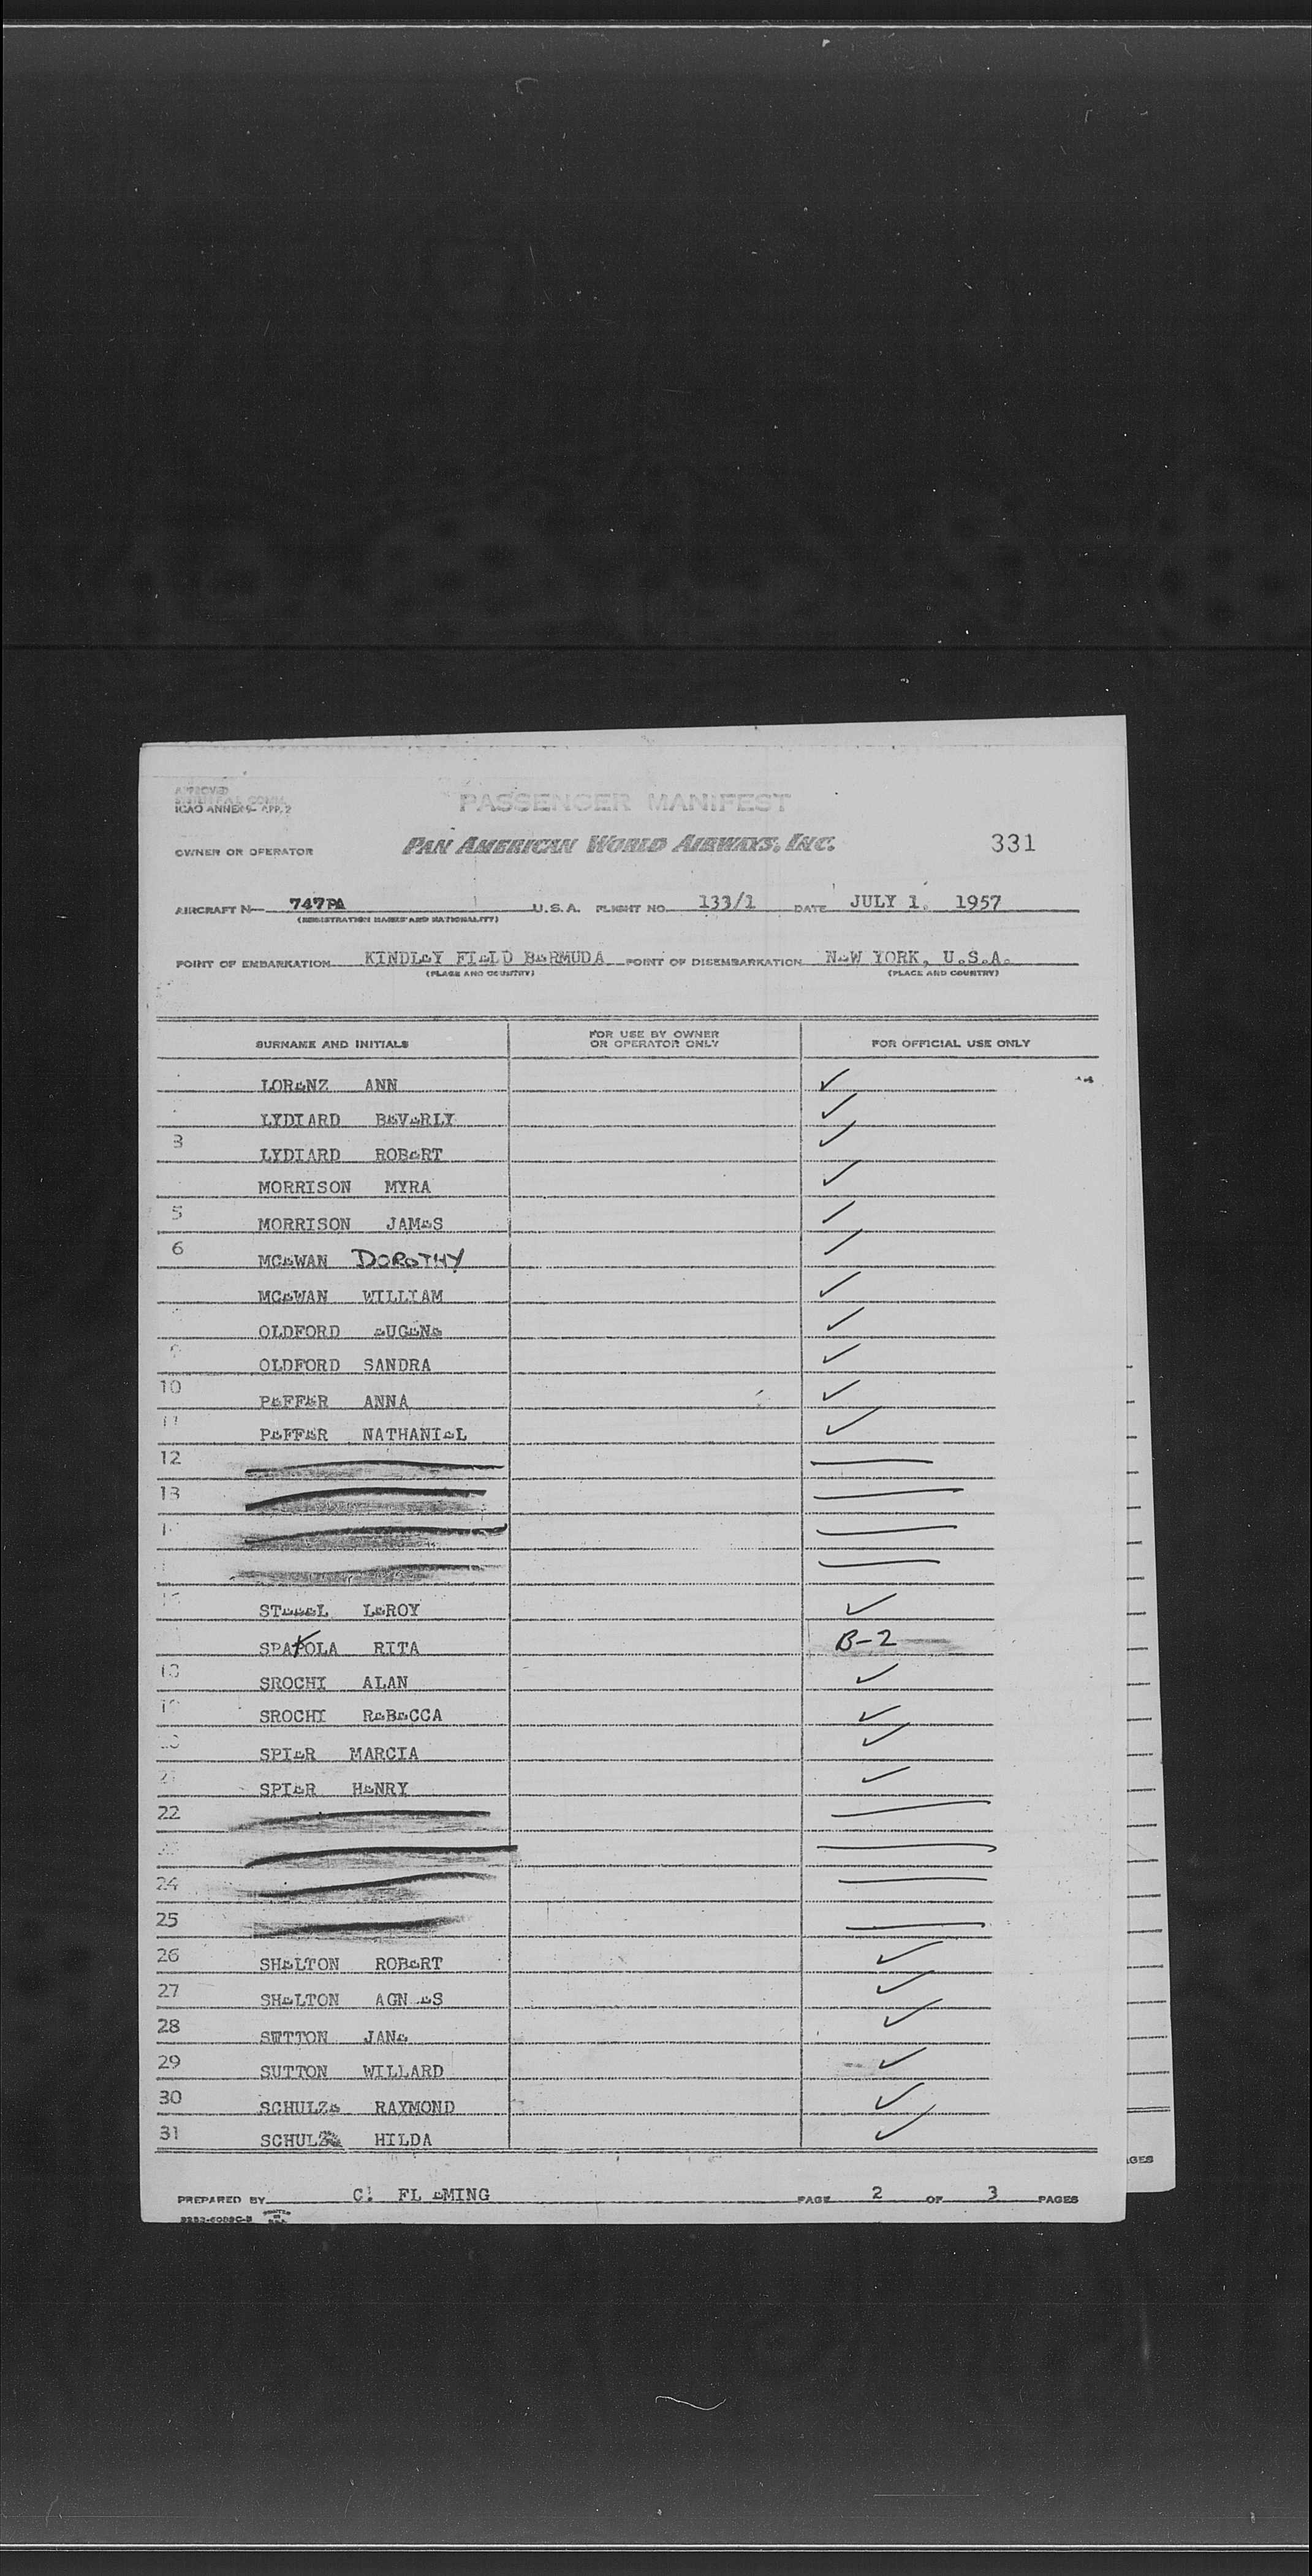 APPROVED
ICAO ANNEX 9- APP. 2
PASSENGER MANIFEST
OWNER OR OPERATOR PAN AMERICAN WORLD AIRWAYS, INC. 331
AIRCRAFT N— 747PA U.S.A. FLIGHT NO. 133/1 DATE JULY 1. 1957
(REGISTRATION MARKS AND NATIONALITY)
POINT OF EMBARKATION KINDLEY FIELD BERMUDA POINT OF DISEMBARKATION NEW YORK, U.S.A.
(PLACE AND COUNTRY) (PLACE AND COUNTRY)
SURNAME AND INITIALS FOR USE BY OWNER OR OPERATOR ONLY FOR OFFICIAL USE ONLY
LORENZ ANN ✓
LYDIARD BEVERLY ✓
3 LYDIARD ROBERT ✓
MORRISON MYRA ✓
5 MORRISON JAMES ✓
6 MCEWAN DOROTHY ✓
MCEWAN WILLIAM ✓
OLDFORD EUGENE ✓
9 OLDFORD SANDRA ✓
10 PEFFER ANNA ✓
11 PEFFER NATHANIEL ✓
12
13
STEEEL LEROY ✓
SPATOLA RITA B-2
18 SROCHI ALAN ✓
19 SROCHI REBECCA ✓
20 SPIER MARCIA ✓
21 SPIER HENRY ✓
22
23
24
25
26 SHELTON ROBERT ✓
27 SHELTON AGNES ✓
28 SUTTON JANE ✓
29 SUTTON WILLARD ✓
30 SCHULZE RAYMOND ✓
31 SCHULZ HILDA ✓
PREPARED BY C! FLEMING PAGE 2 OF 3 PAGES
AGES